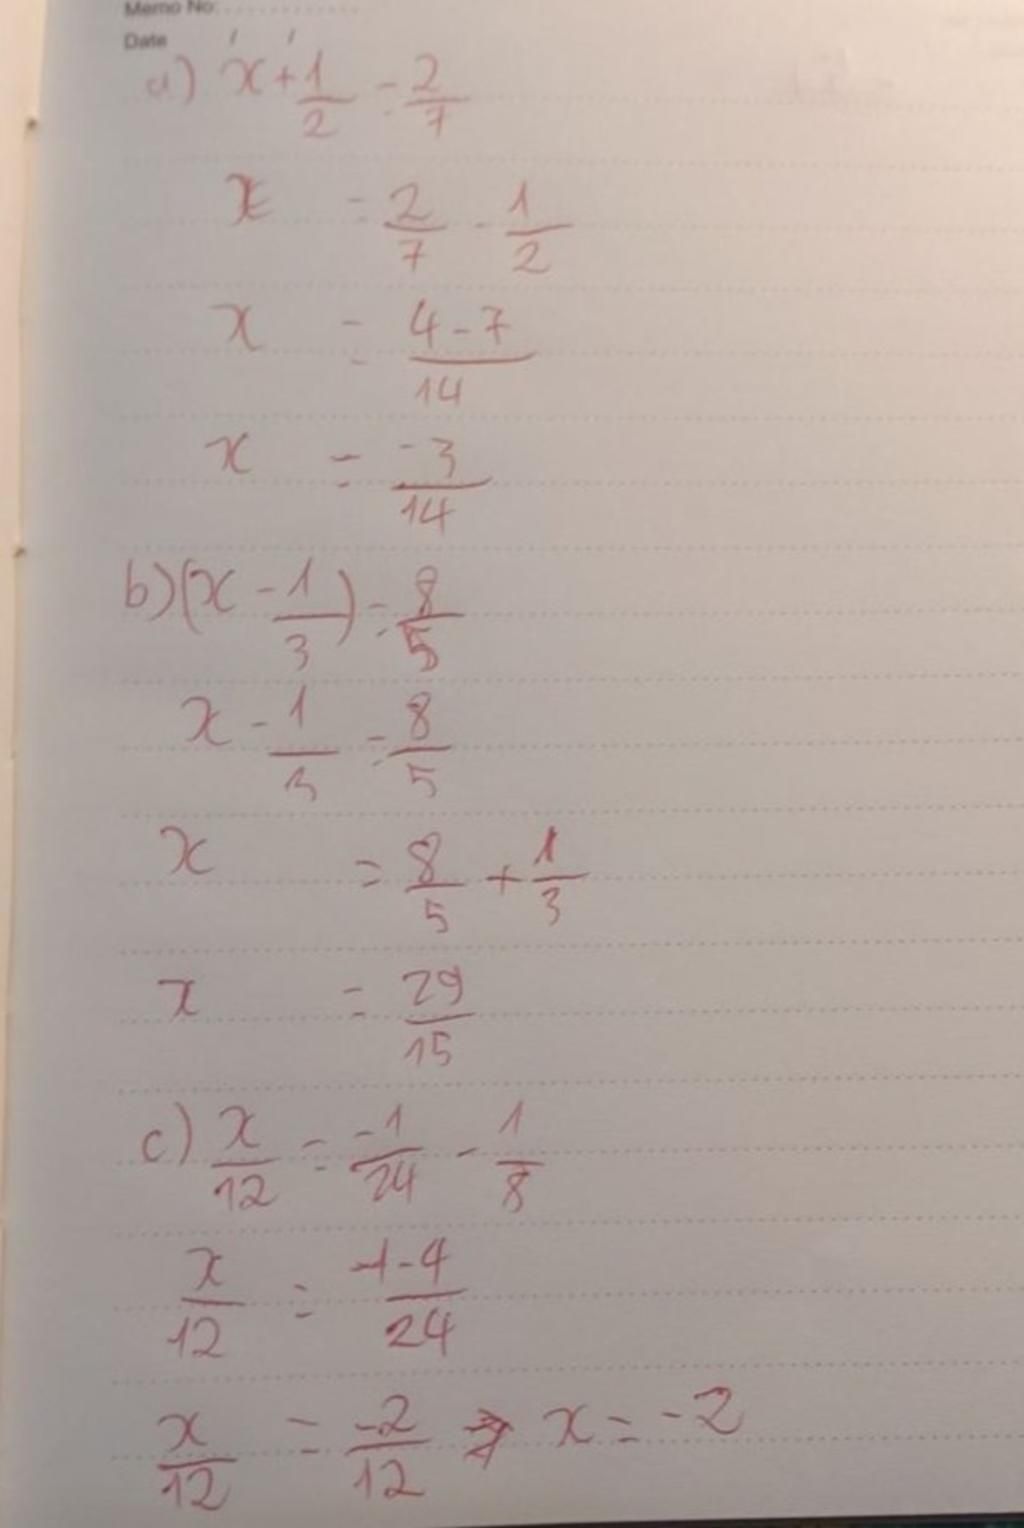 Memo No:
Date / /
a) x + 1/2 = 2/7
x = 2/7 - 1/2
x = (4-7)/14
x = -3/14
b) (x - 1/3) = 8/5
x - 1/3 = 8/5
x = 8/5 + 1/3
x = 29/15
c) x/12 = -1/24 - 1/8
x/12 = (-1-4)/24
x/12 = -2/12 ⇒ x = -2